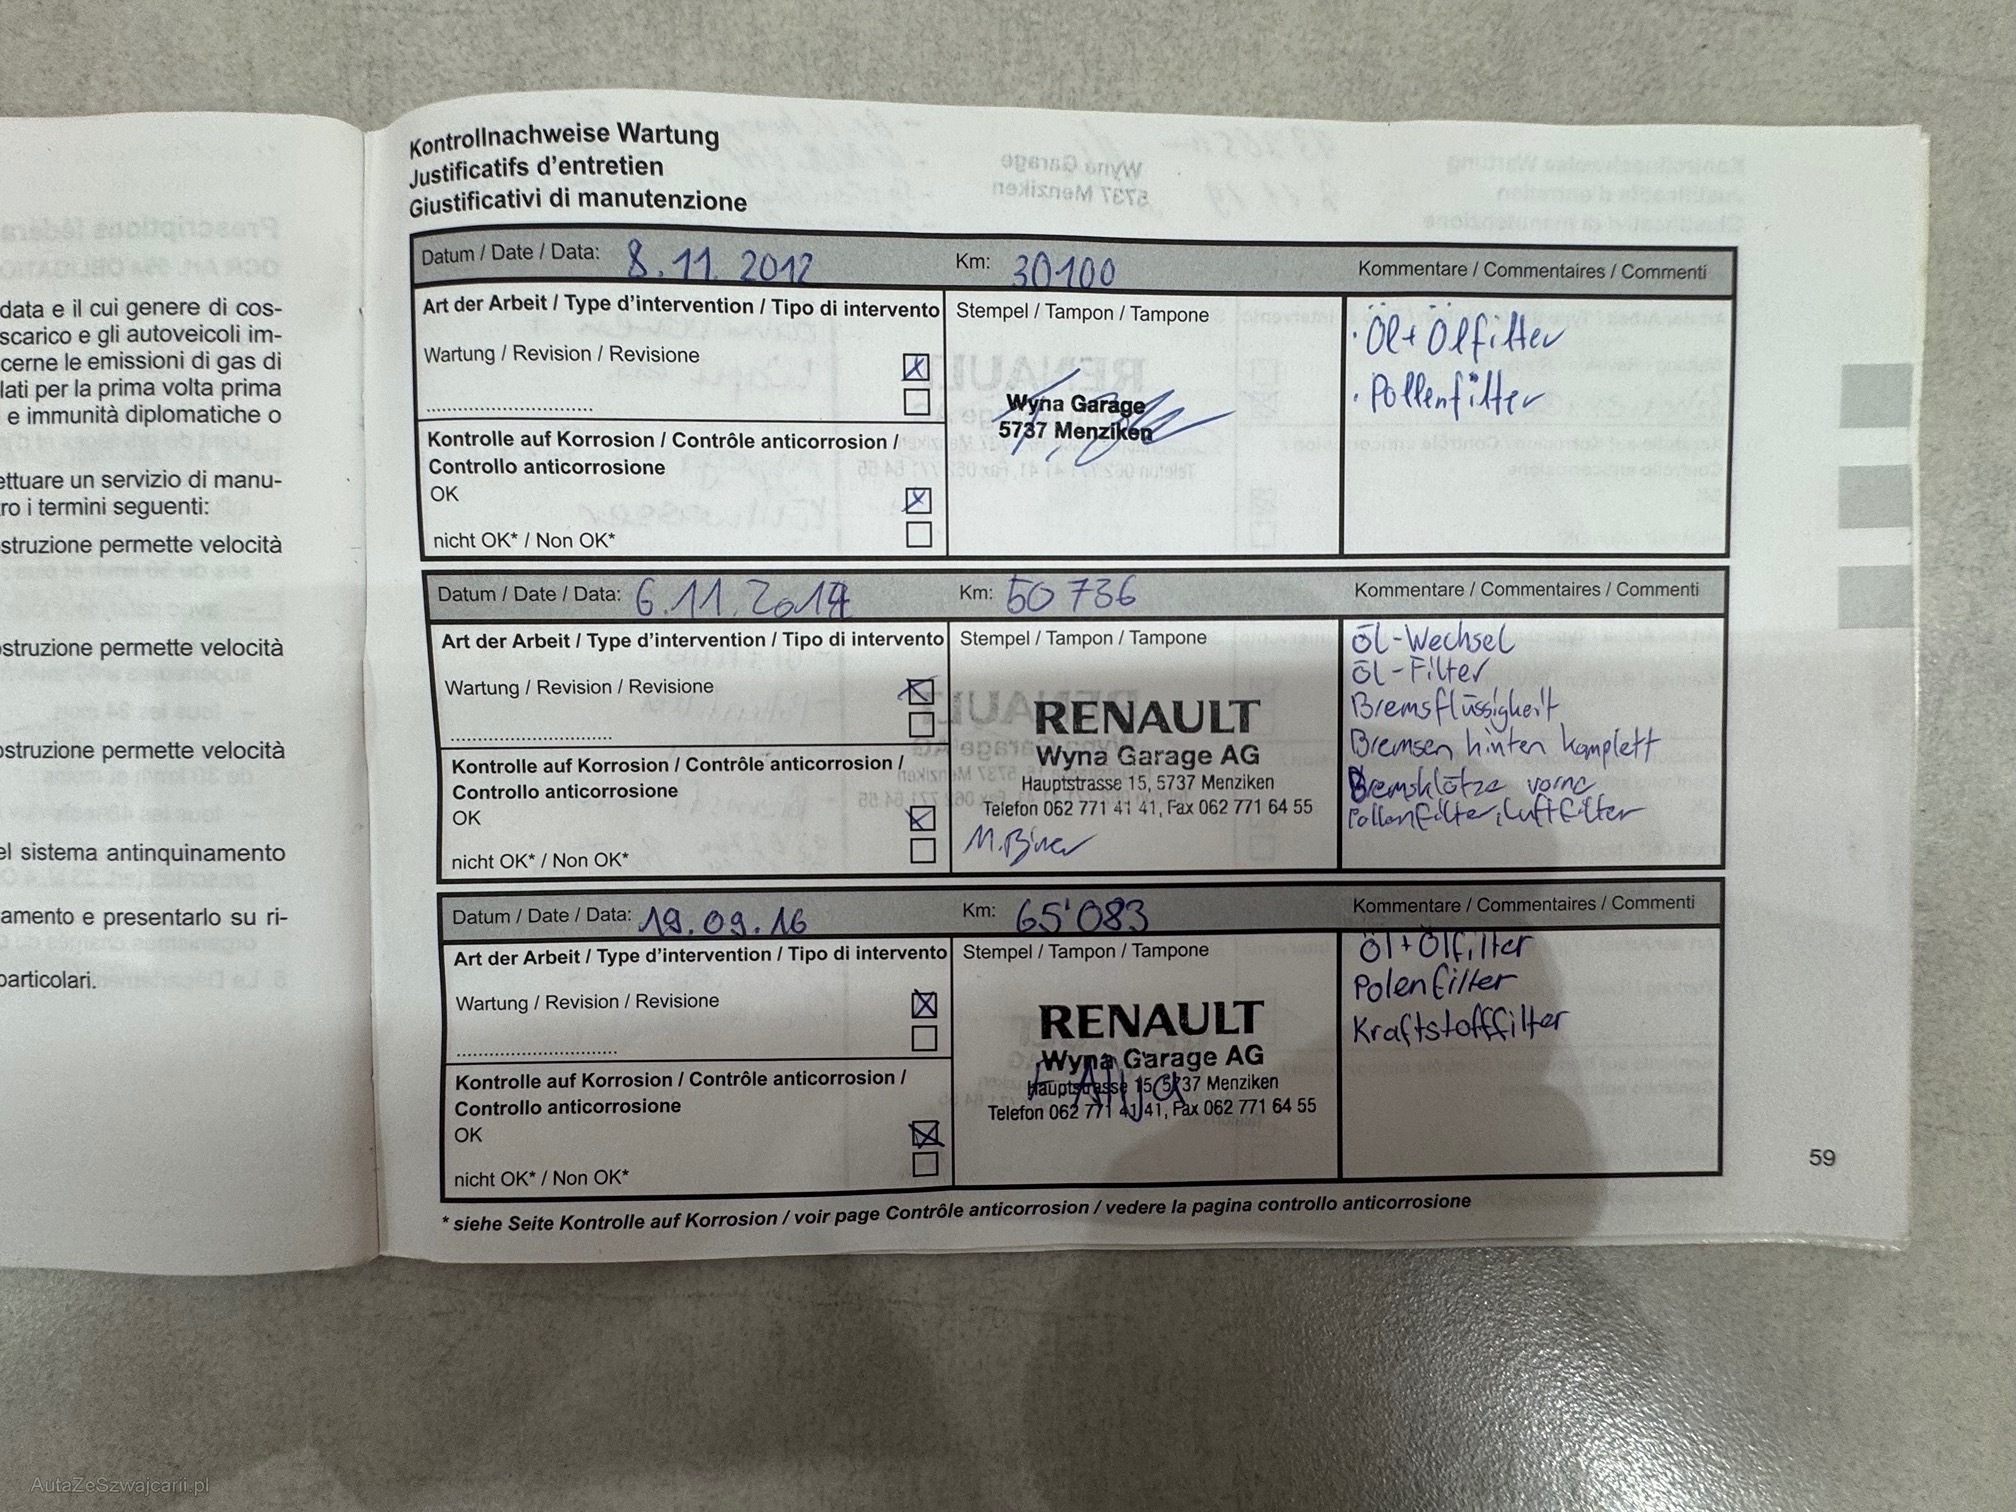 data e il cui genere di cos-
scarico e gli autoveicoli im-
cerne le emissioni di gas di
lati per la prima volta prima
e immunità diplomatiche o
ettuare un servizio di manu-
ro i termini seguenti:
struzione permette velocità
ostruzione permette velocità
ostruzione permette velocità
el sistema antinquinamento
amento e presentarlo su ri-
particolari.
Kontrollnachweise Wartung
Justificatifs d'entretien
Giustificativi di manutenzione
Datum / Date / Data: 8.11.2012 Km: 30100 Kommentare / Commentaires / Commenti
Art der Arbeit / Type d'intervention / Tipo di intervento
Wartung / Revision / Revisione
Kontrolle auf Korrosion / Contrôle anticorrosion /
Controllo anticorrosione
OK
nicht OK* / Non OK*
Stempel / Tampon / Tampone
Wyna Garage
5737 Menziken
· Öl+ Ölfilter
· Pollenfilter
Datum / Date / Data: 6.11.2014 Km: 50 736 Kommentare / Commentaires / Commenti
Art der Arbeit / Type d'intervention / Tipo di intervento
Wartung / Revision / Revisione
Kontrolle auf Korrosion / Contrôle anticorrosion /
Controllo anticorrosione
OK
nicht OK* / Non OK*
Stempel / Tampon / Tampone
RENAULT
Wyna Garage AG
Hauptstrasse 15, 5737 Menziken
Telefon 062 771 41 41, Fax 062 771 64 55
Öl-Wechsel
Öl-Filter
Bremsflüssigkeit
Bremsen hinten komplett
Bremsklötze vorne
Pollenfilter, Luftfilter
Datum / Date / Data: 19.09.16 Km: 65'083 Kommentare / Commentaires / Commenti
Art der Arbeit / Type d'intervention / Tipo di intervento
Wartung / Revision / Revisione
Kontrolle auf Korrosion / Contrôle anticorrosion /
Controllo anticorrosione
OK
nicht OK* / Non OK*
Stempel / Tampon / Tampone
RENAULT
Wyna Garage AG
Hauptstrasse 15, 5737 Menziken
Telefon 062 771 41 41, Fax 062 771 64 55
Öl+Ölfilter
Polenfilter
Kraftstofffilter
* siehe Seite Kontrolle auf Korrosion / voir page Contrôle anticorrosion / vedere la pagina controllo anticorrosione
59
AutaZeSzwajcarii.pl